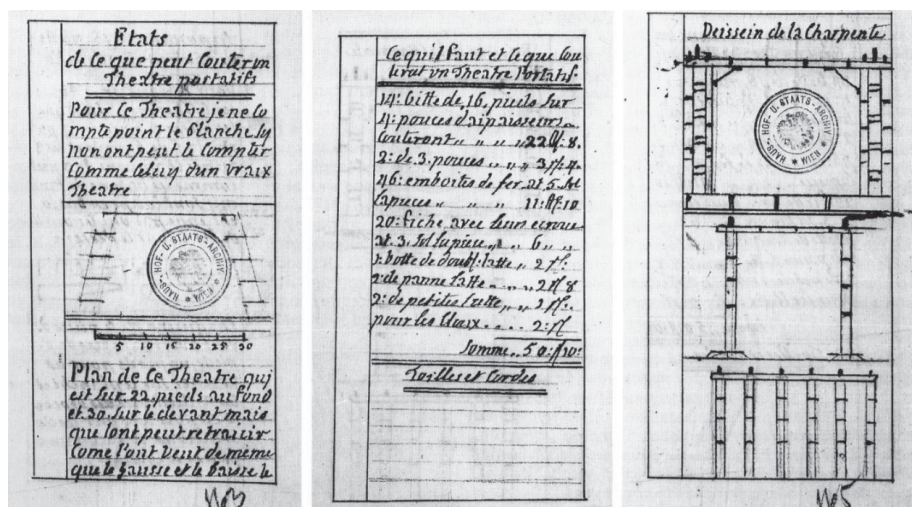 Etats
de Ce que peut Couter vn
Theatre portatifs
Pour Ce Theatre je ne Co
mpte point le Planche
non ont peut le Compter
Comme Celuy d'un vraux
Theatre
HAUS- HOF- U. STAATS-ARCHIV WIEN
5 10 15 20 25 30
Plan de Ce Theatre qui
est sur 22 pieds au fond
et 30 sur le devant mais
que lont peut retraicir
Come l'ont veut de meme
que le hausse et le baisse le
No 3
Ce quil faut et Ce que Cou
tirat vn Theatre Portatif
14: bitte de 16 pieds sur
4: pouces d'aipaisseur
Couteront 22 fl: 8.
2: de 3 pouces 3 fl: 4.
46: emboites de fer at 5 sol
la piece 11: fl: 10
20: fiche avec leur ecroue
at 3 sol la piece 6
1: botte de doubl: latte 2 fl:
2: de panne latte 2 fl 8
2: de petites latte 2 fl:
pour les Cloux 2: fl
Somme 50: fl 10:
Toilles et Cordes
Deissein de la Charpente
HAUS- HOF- U. STAATS-ARCHIV WIEN
No 5